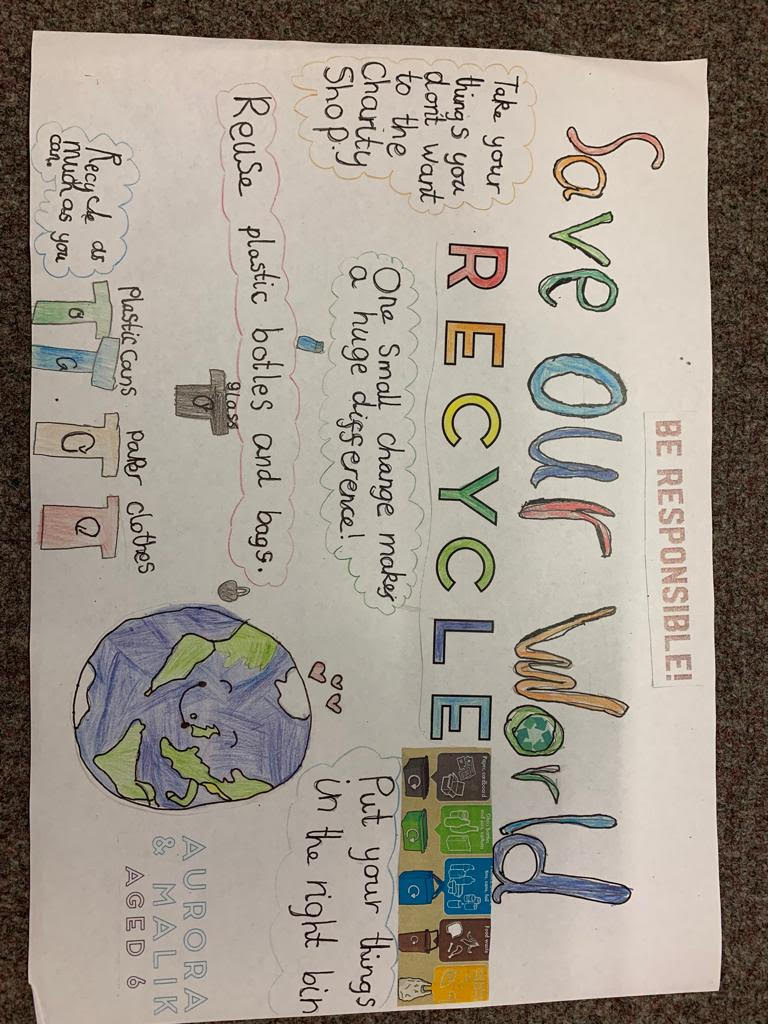 BE RESPONSIBLE!
Save Our World
RECYCLE
Take your
things you
dont want
to the
Charity
Shop.
One small change makes
a huge difference!
Reuse plastic botles and bags.
glass
Recycle as
much as you
can.
Plastic Cans
paper
clothes
Paper, cardboard
Food waste
Put your things
in the right bin
AURORA
& MALIK
AGED 6